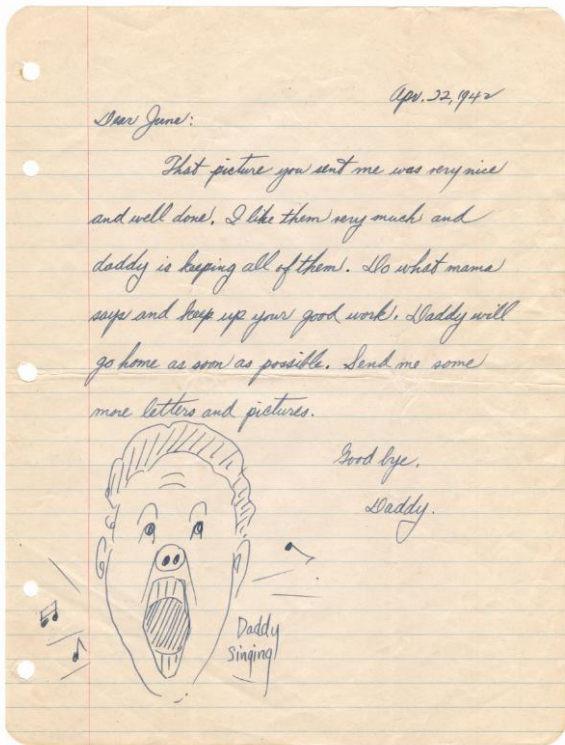 Apr. 22, 1942
Dear June:
That picture you sent me was very nice
and well done. I like them very much and
daddy is keeping all of them. Do what mama
says and keep up your good work. Daddy will
go home as soon as possible. Send me some
more letters and pictures.
Good bye.
Daddy.
Daddy
Singing